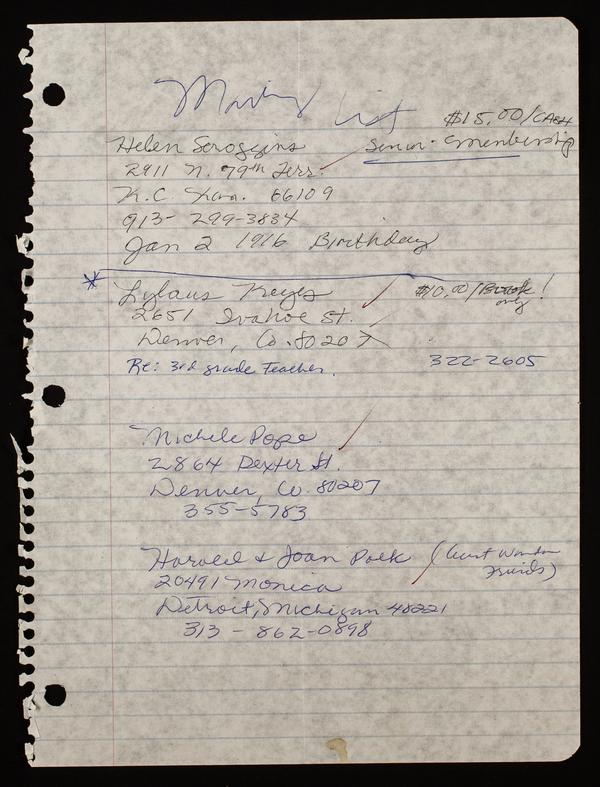 Mailing List
$15.00/CASH
Helen Scroggins Senior-Membership
2911 N. 79th Terr.
K.C. Kan. 66109
913-299-3834
Jan 2 1916 Birthday
* Lylaus Keyes $10.00/Book only!
2651 Ivahoe St.
Denver, Co. 80207
Re: 3rd grade Teacher. 322-2605
Michele Pope
2864 Dexter St.
Denver, Co. 80207
355-5783
Harold & Joan Polk (Aunt Wanda
20491 Monica Friends)
Detroit, Michigan 48221
313-862-0898